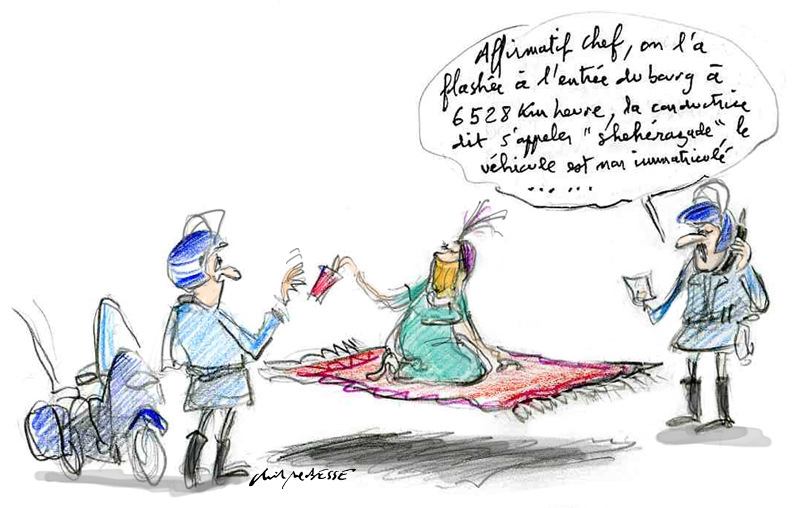 Affirmatif Chef, on l'a
flashée à l'entrée du bourg à
6528 Km heure, la conductrice
dit s'appeler "shehérazade" le
véhicule est non immatriculé
......
BESSE